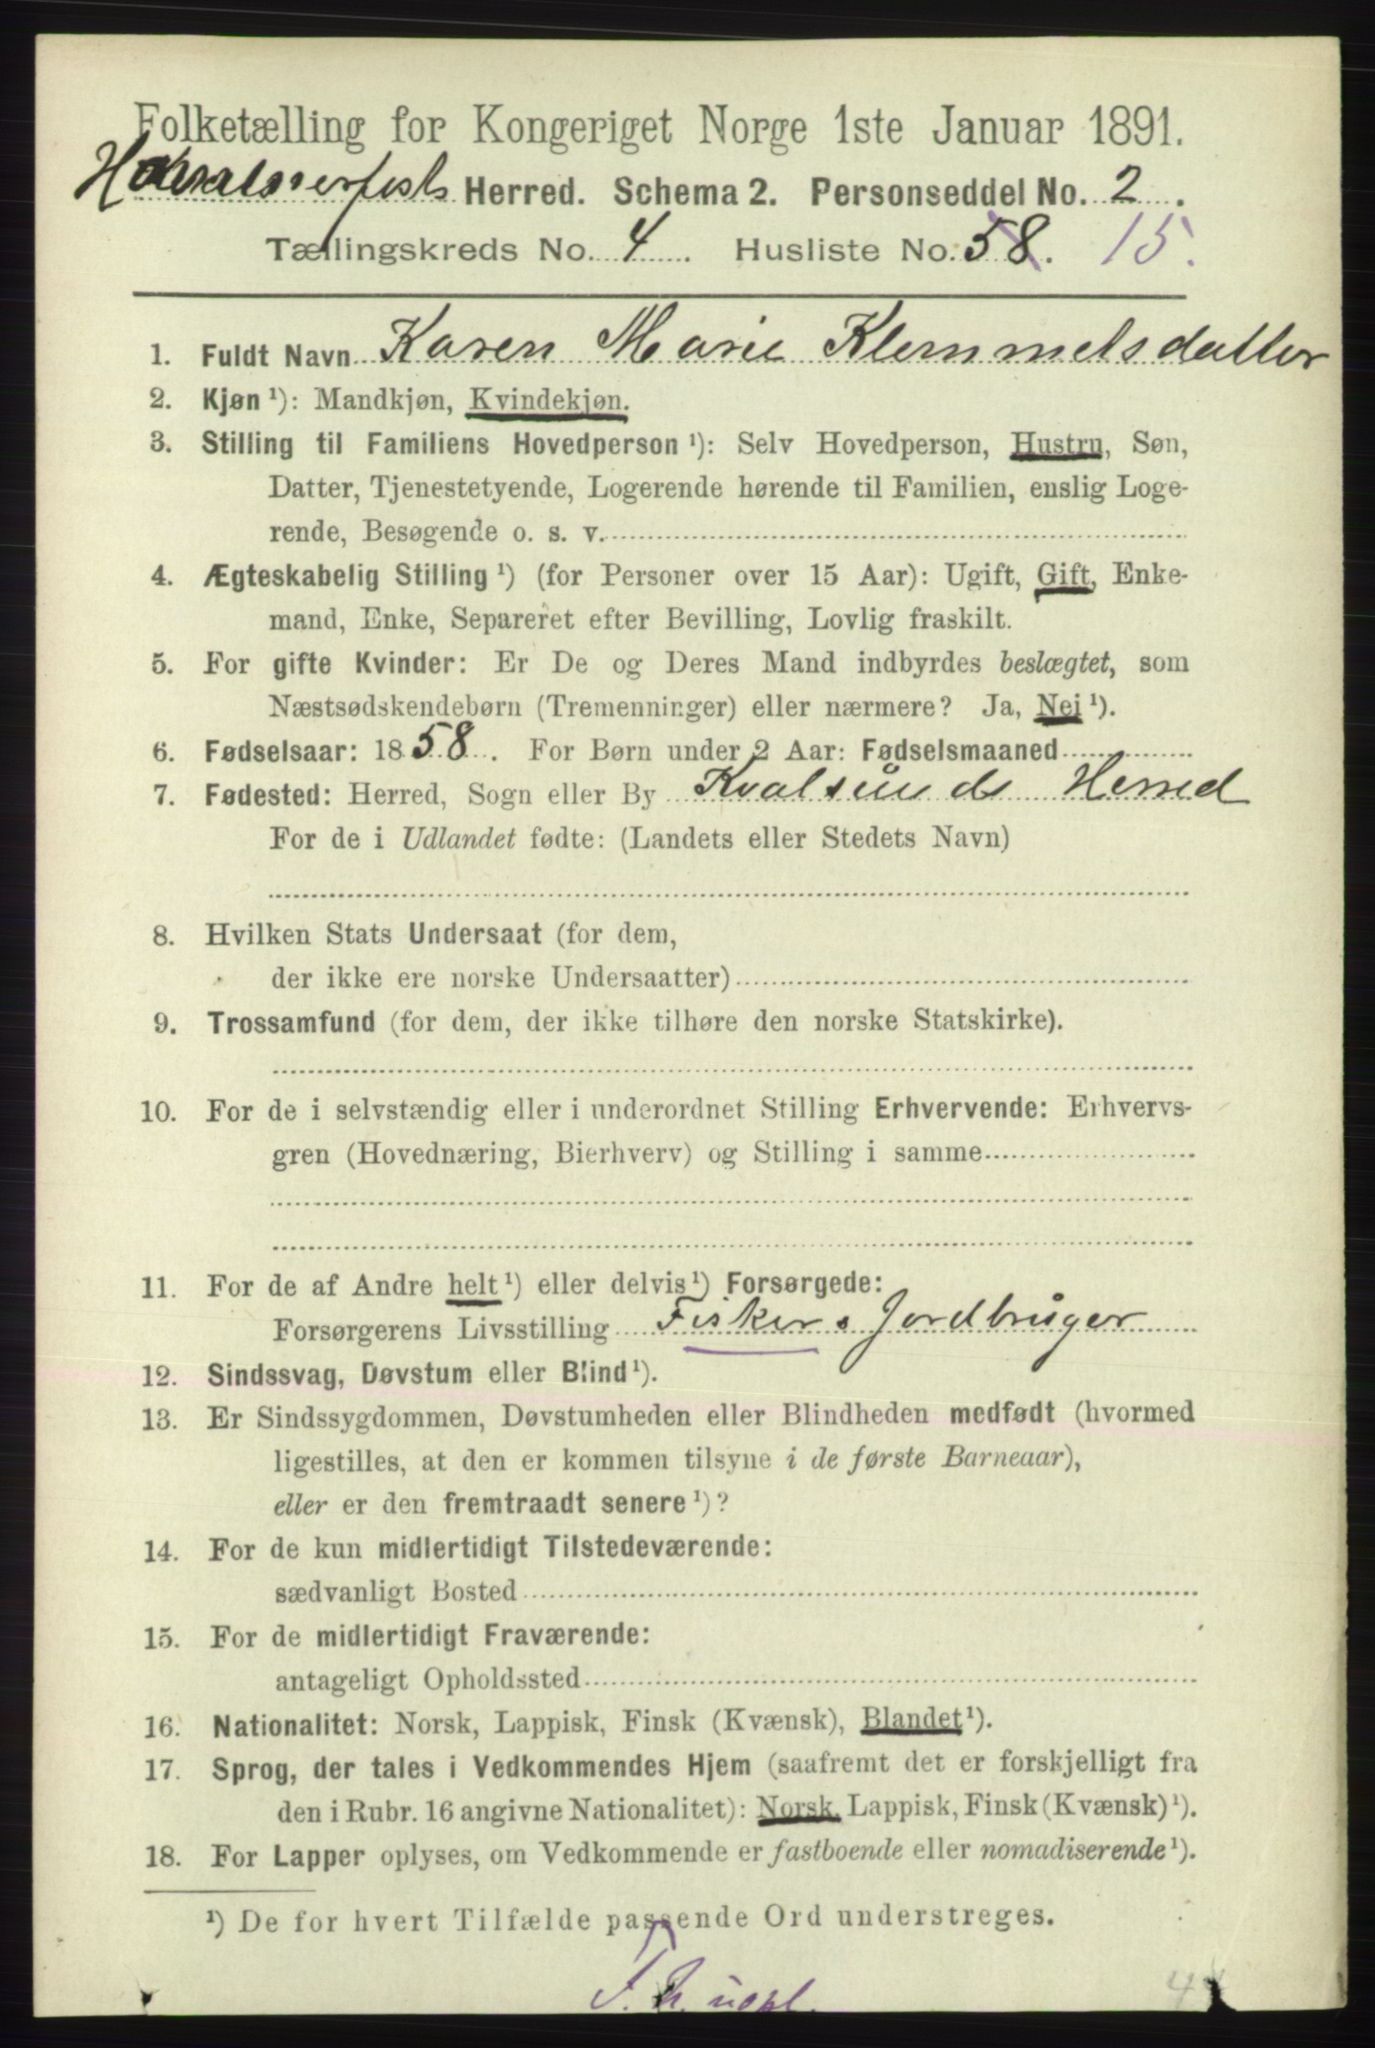 Folketælling for Kongeriget Norge 1ste Januar 1891.
Herred. Schema 2. Personseddel No. 2.
Tællingskreds No. 4. Husliste No. 58. 15.
1. Fuldt Navn Karen Marie Klemmetsdatter
2. Kjøn ¹): Mandkjøn, Kvindekjøn.
3. Stilling til Familiens Hovedperson ¹): Selv Hovedperson, Hustru, Søn,
Datter, Tjenestetyende, Logerende hørende til Familien, enslig Loge-
rende, Besøgende o. s. v.
4. Ægteskabelig Stilling ¹) (for Personer over 15 Aar): Ugift, Gift, Enke-
mand, Enke, Separeret efter Bevilling, Lovlig fraskilt.
5. For gifte Kvinder: Er De og Deres Mand indbyrdes beslægtet, som
Næstsødskendebørn (Tremenninger) eller nærmere? Ja, Nei ¹).
6. Fødselsaar: 1858. For Børn under 2 Aar: Fødselsmaaned
7. Fødested: Herred, Sogn eller By Kvalsunds Herred
For de i Udlandet fødte: (Landets eller Stedets Navn)
8. Hvilken Stats Undersaat (for dem,
der ikke ere norske Undersaatter)
9. Trossamfund (for dem, der ikke tilhøre den norske Statskirke).
10. For de i selvstændig eller i underordnet Stilling Erhvervende: Erhvervs-
gren (Hovednæring, Bierhverv) og Stilling i samme
11. For de af Andre helt ¹) eller delvis ¹) Forsørgede:
Forsørgerens Livsstilling Fisker & Jordbruger
12. Sindssvag, Døvstum eller Blind ¹).
13. Er Sindssygdommen, Døvstumheden eller Blindheden medfødt (hvormed
ligestilles, at den er kommen tilsyne i de første Barneaar),
eller er den fremtraadt senere ¹)?
14. For de kun midlertidigt Tilstedeværende:
sædvanligt Bosted
15. For de midlertidigt Fraværende:
antageligt Opholdssted
16. Nationalitet: Norsk, Lappisk, Finsk (Kvænsk), Blandet ¹).
17. Sprog, der tales i Vedkommendes Hjem (saafremt det er forskjelligt fra
den i Rubr. 16 angivne Nationalitet): Norsk, Lappisk, Finsk (Kvænsk) ¹).
18. For Lapper oplyses, om Vedkommende er fastboende eller nomadiserende ¹).
¹) De for hvert Tilfælde passende Ord understreges.